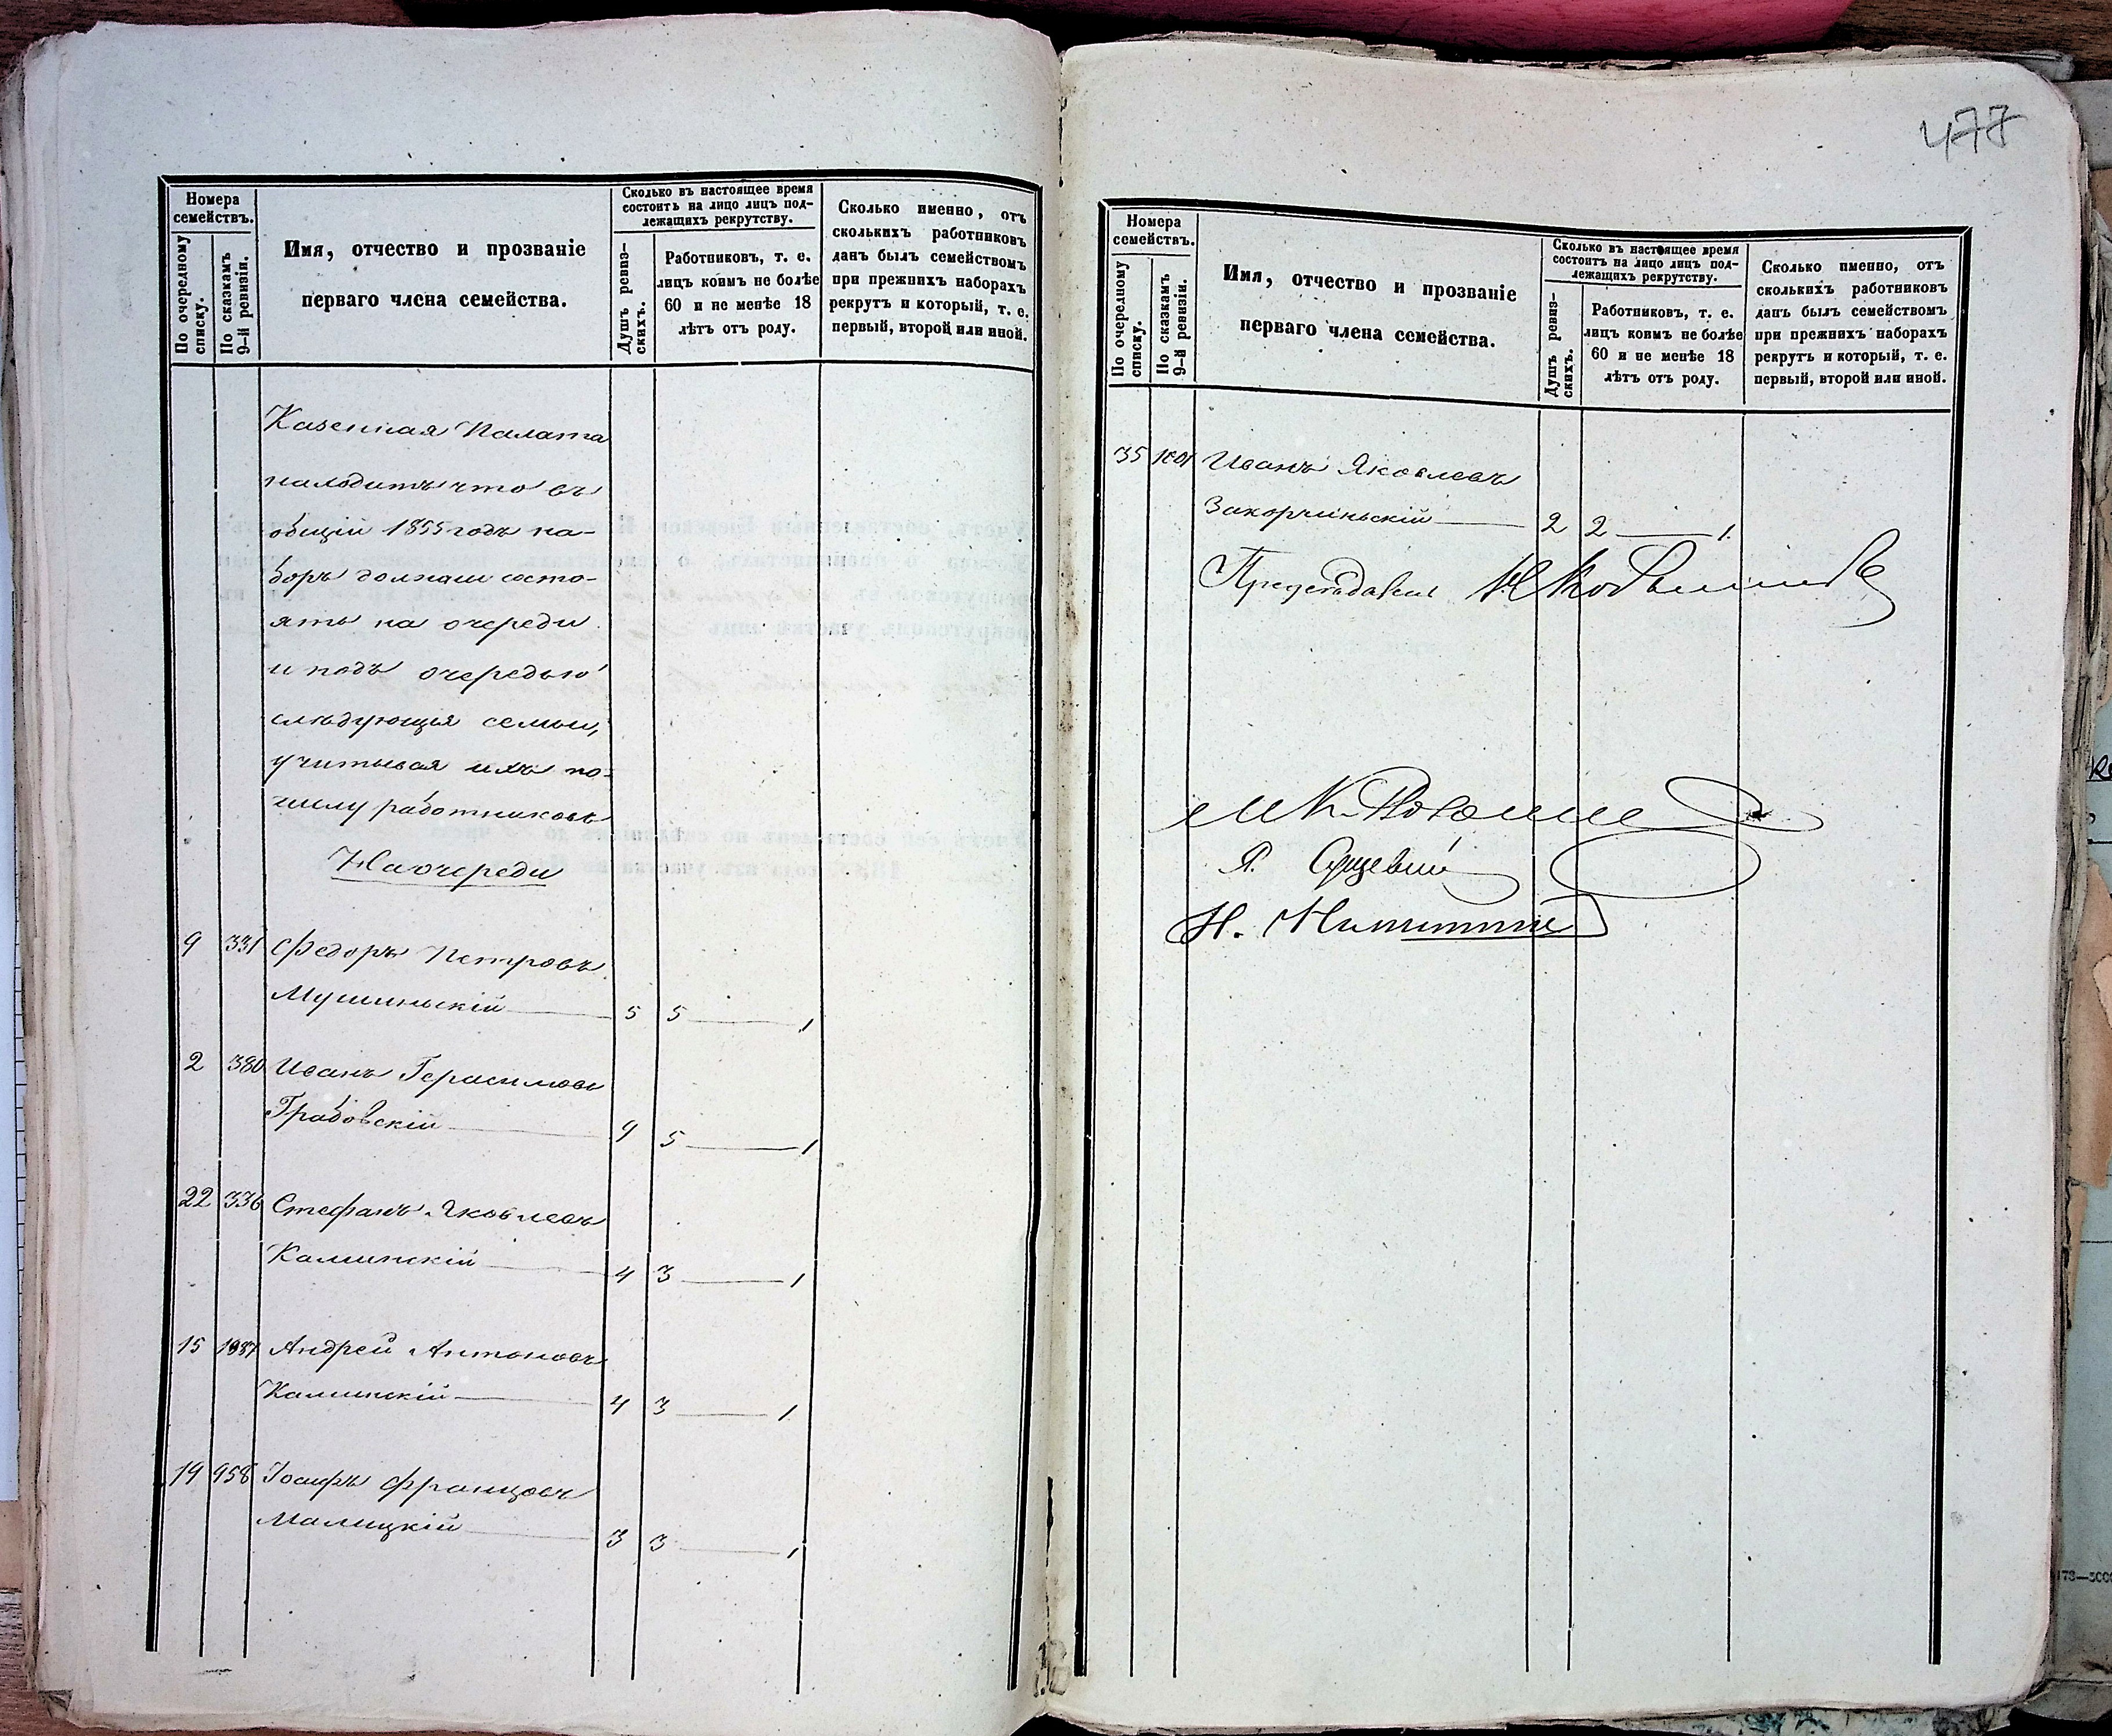 Номера
семействъ.
По очередному
списку.
По сказкамъ
9-й ревизіи.
Имя, отчество и прозваніе
перваго члена семейства.
Сколько въ настоящее время
состоитъ на лицо лицъ под-
лежащихъ рекрутству.
Душъ ревиз-
скихъ.
Работниковъ, т. е.
лицъ коимъ не болѣе
60 и не менѣе 18
лѣтъ отъ роду.
Сколько именно, отъ
сколькихъ работниковъ
данъ былъ семействомъ
при прежнихъ наборахъ
рекрутъ и который, т. е.
первый, второй или иной.
Казенная Палата
находитъ что въ
общій 1855 годъ на-
боръ должны состо-
ять на очереди
и подъ очередью
слѣдующія семьи,
учитывая ихъ по
числу работниковъ
На очереди
9 331 Федоръ Петровъ
Мушиньскій 5 5 1
2 380 Иванъ Герасимовъ
Грабовскій 9 5 1
22 336 Стефанъ Яковлевъ
Калинскій 4 3 1
15 1987 Андрей Антоновъ
Калинскій 4 3 1
19 958 Іосифъ Францовъ
Малицкій 3 3 1
477
Номера
семействъ.
По очередному
списку.
По сказкамъ
9-й ревизіи.
Имя, отчество и прозваніе
перваго члена семейства.
Сколько въ настоящее время
состоитъ на лицо лицъ под-
лежащихъ рекрутству.
Душъ ревиз-
скихъ.
Работниковъ, т. е.
лицъ коимъ не болѣе
60 и не менѣе 18
лѣтъ отъ роду.
Сколько именно, отъ
сколькихъ работниковъ
данъ былъ семействомъ
при прежнихъ наборахъ
рекрутъ и который, т. е.
первый, второй или иной.
35 Иванъ Яковлевъ
Закорчиньскій 2 2 1
Предсѣдатель
Я.
Н.